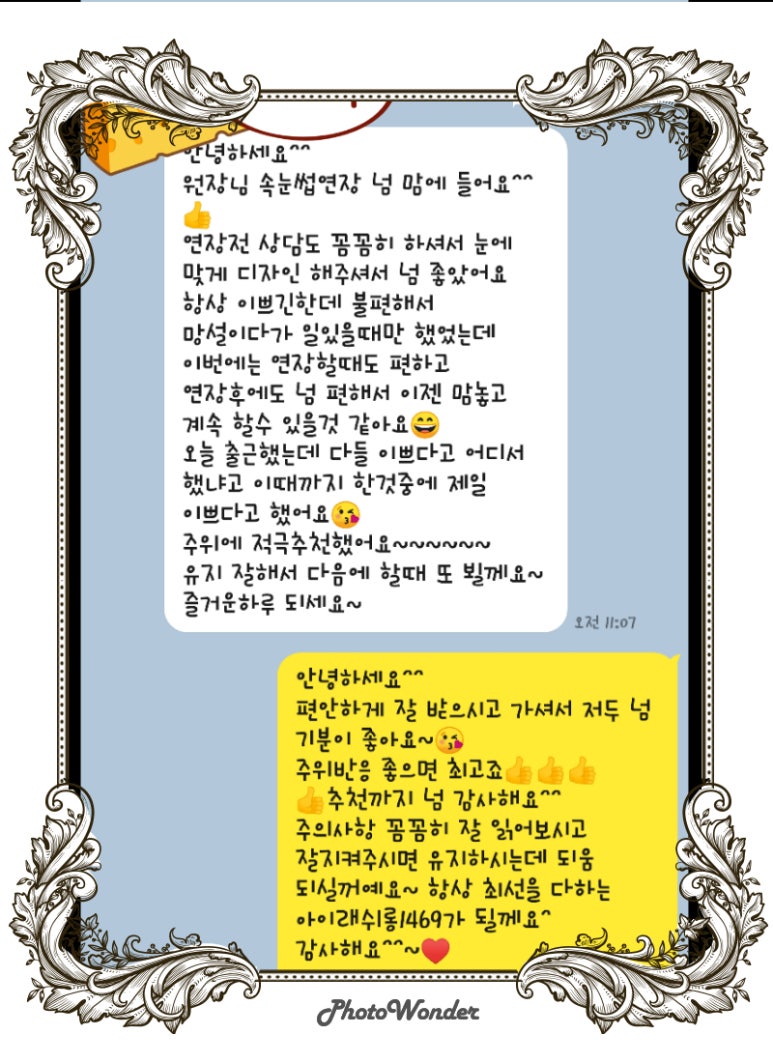 안녕하세요^^
원장님 속눈썹연장 넘 맘에 들어요^^
👍
연장전 상담도 꼼꼼히 하셔서 눈에
맞게 디자인 해주셔서 넘 좋았어요
항상 이쁘긴한데 불편해서
망설이다가 일있을때만 했었는데
이번에는 연장할때도 편하고
연장후에도 넘 편해서 이젠 맘놓고
계속 할수 있을것 같아요😄
오늘 출근했는데 다들 이쁘다고 어디서
했냐고 이때까지 한것중에 제일
이쁘다고 했어요😘
주위에 적극추천했어요~~~~~~
유지 잘해서 다음에 할때 또 뵐께요~
즐거운하루 되세요~
오전 11:07
안녕하세요^^
편안하게 잘 받으시고 가셔서 저두 넘
기분이 좋아요~😘
주위반응 좋으면 최고죠👍👍👍
👍추천까지 넘 감사해요^^
주의사항 꼼꼼히 잘 읽어보시고
잘지켜주시면 유지하시는데 되움
되실꺼예요~ 항상 최선을 다하는
아이래쉬롱1469가 될께요^
감사해요^^~♥
PhotoWonder